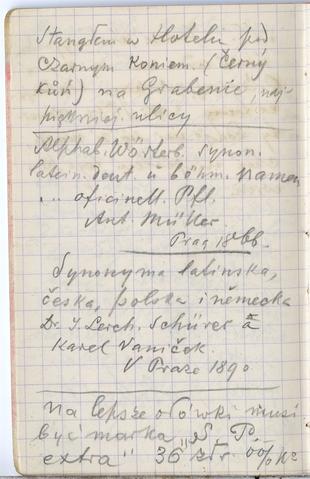 Stanąłem w Hotelu pod
Czarnym Koniem. (Černý
kůň) na Grabenie, naj-
piękniej. ulicy
Alphab. Wörterb. synon.
latein. deut. u böhm. Namen
... oficinell. Pfl.
Ant. Müller
Prag 1866.
Synonyma latinska,
česka, polska i německa
Dr. J. Lerch. Schürer a
Karel Vaniček.
V Praze 1890
na lepsze ołówki musi
być marka
extra" 36 złr.